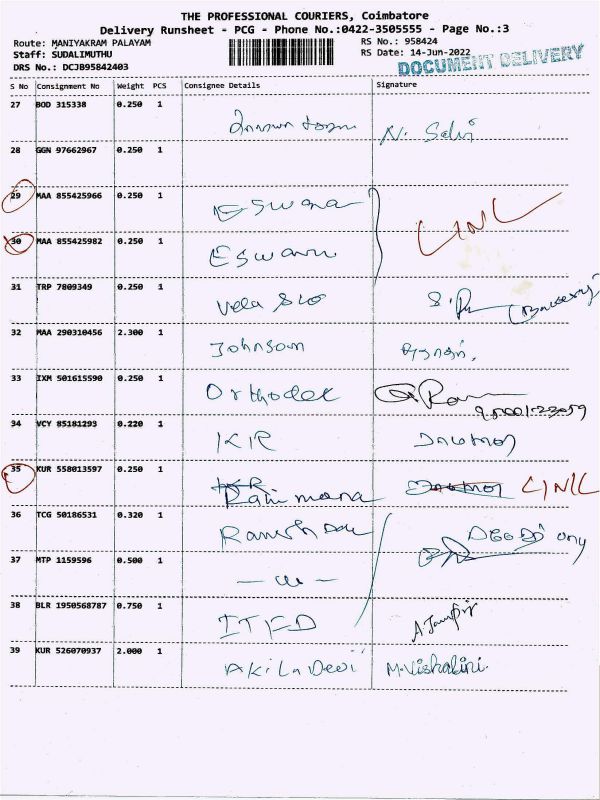 THE PROFESSIONAL COURIERS, Coimbatore
Delivery Runsheet - PCG - Phone No.:0422-3505555 - Page No.:3
Route: MANIYAKRAM PALAYAM RS No.: 958424
Staff: SUDALIMUTHU RS Date: 14-Jun-2022
DOCUMENT DELIVERY
DRS No.: DCJB95842403
S No Consignment No Weight PCS Consignee Details Signature
27 BOD 315338 0.250 1 N. Selvi
28 GGN 97662967 0.250 1
29 MAA 855425966 0.250 1 Eswara
30 MAA 855425982 0.250 1 Eswara
31 TRP 7809349 0.250 1 Vela
32 MAA 290310456 2.300 1 Johnson
33 IXM 501615590 0.250 1
34 VCY 85181293 0.220 1 KR
35 KUR 558013597 0.250 1
36 TCG 50186531 0.320 1
37 MTP 1159596 0.500 1
38 BLR 1950568787 0.750 1
39 KUR 526070937 2.000 1 Akila Devi M. Vishalini.